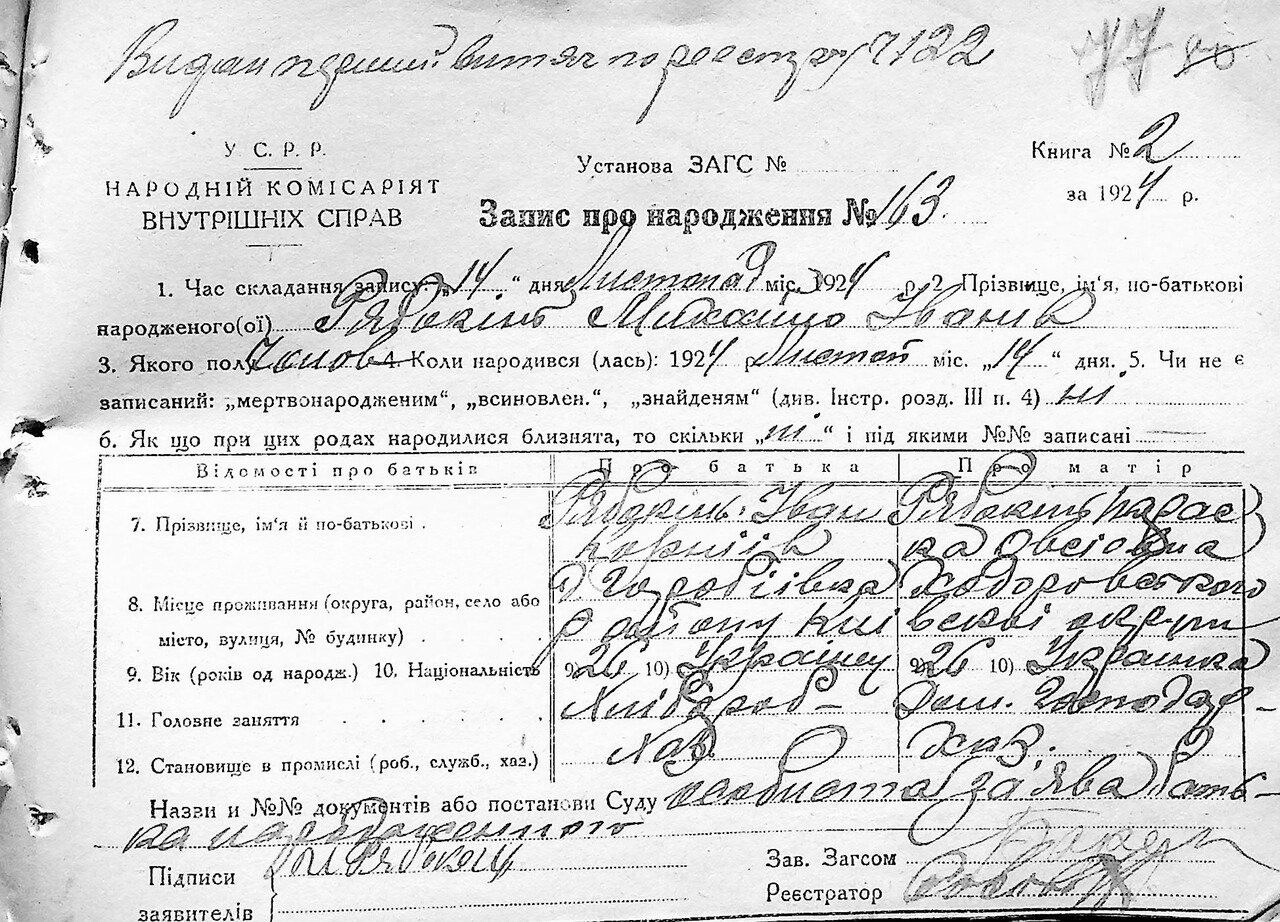 Видан перший витяг по реестру 7122
77
У С. Р. Р.
НАРОДНІЙ КОМІСАРІЯТ
ВНУТРІШНІХ СПРАВ
Установа ЗАГС №
Книга № 2
за 1924 р.
Запис про народження № 163.
1. Час складання запису: „14“ дня Листопад міс. 1924 р. 2. Прізвище, ім'я, по-батькові
народженого(ої) Рябокінь Михайло Іванів
3. Якого пол Чолов 4. Коли народився (лась): 1924 р. Листоп міс. „14“ дня. 5. Чи не є
записаний: „мертвонародженим“, „всиновлен.“, „знайденям“ (див. Інстр. розд. III п. 4) ні
6. Як що при цих родах народилися близнята, то скільки „ні“ і під якими №№ записані
Відомості про батьків Про батька Про матір
7. Прізвище, ім'я й по-батькові Рябокінь Іван Рябокінь Парас
Корніїв ка Овсіовна
8. Місце проживання (округа, район, село або Городіівка Ходоровського
місто, вулиця, № будинку) району Киї вскої округи
9. Вік (років од народж.) 10. Національність 9) 26 10) Українец 9) 26 10) Українка
11. Головне заняття Хлібороб Дом. Господар
12. Становище в промислі (роб., служб., хаз.) Хаз. Хаз.
Назви и №№ документів або постанови Суду особиста заява бать-
ка народженного
Підписи
заявителів
Зав. Загсом
Реєстратор